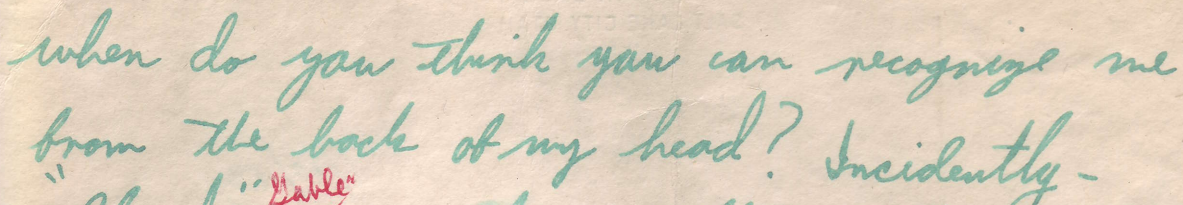 when do you think you can recognize me
from the back of my head? Incidently -
" " Gable"